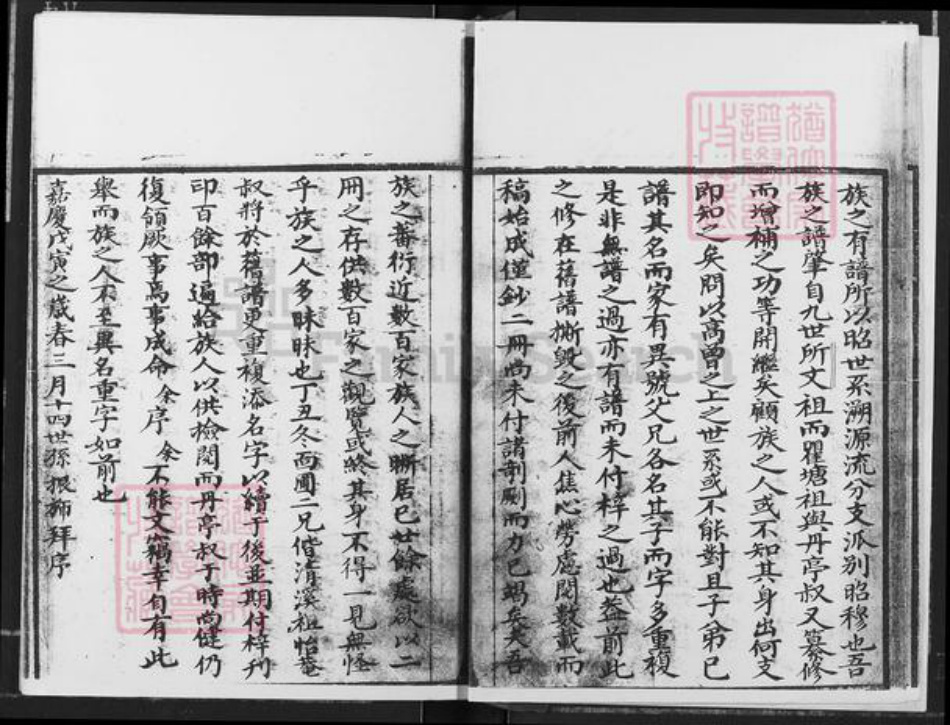 族之有譜所以昭世系溯源流分支派別昭穆也吾
族之譜肇自九世所文祖而瞿塘祖與丹亭叔又纂修
而增補之功等開繼矣顧族之人或不知其身出何支
即知之矣問以高曾之上之世系或不能對且子弟已
譜其名而家有異號父兄各名其子而字多重複
是非無譜之過亦有譜而未付梓之過也蓋前此
之修在舊譜撕毀之後前人焦心勞慮閱數載而
稿始成僅鈔二冊尚未付諸剞劂而力已竭矣夫吾
族之蕃衍近數百家族人之晰居已廿餘處欲以二
冊之存供數百家之觀覽或終其身不得一見無怪
乎族之人多昧昧也丁丑冬面圃二兄偕清溪祖怡菴
叔將於舊譜更重複添名字以續于後並期付梓刋
印百餘部遍給族人以供檢閱而丹亭叔于時尚健仍
復領厥事焉事成命余序余不能文竊幸自有此
舉而族之人不至異名重字如前也
嘉慶戊寅之歲春三月十四世孫振拜序
FamilySearch